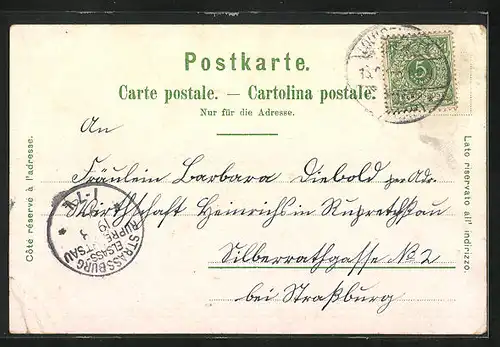 Postkarte.
Carte postale. — Cartolina postale.
Nur für die Adresse.
Côté réservé à l'adresse.
Lato riservato all' indirizzo.
5
An
Fräulein Barbara Diebold per Adr.
Wirthschaft Heinrichs in Ruprechtsau
Silberrathgasse No 2
bei Straßburg
STRASSBURG
ELSASS
RUPRECHTSAU
1-7V